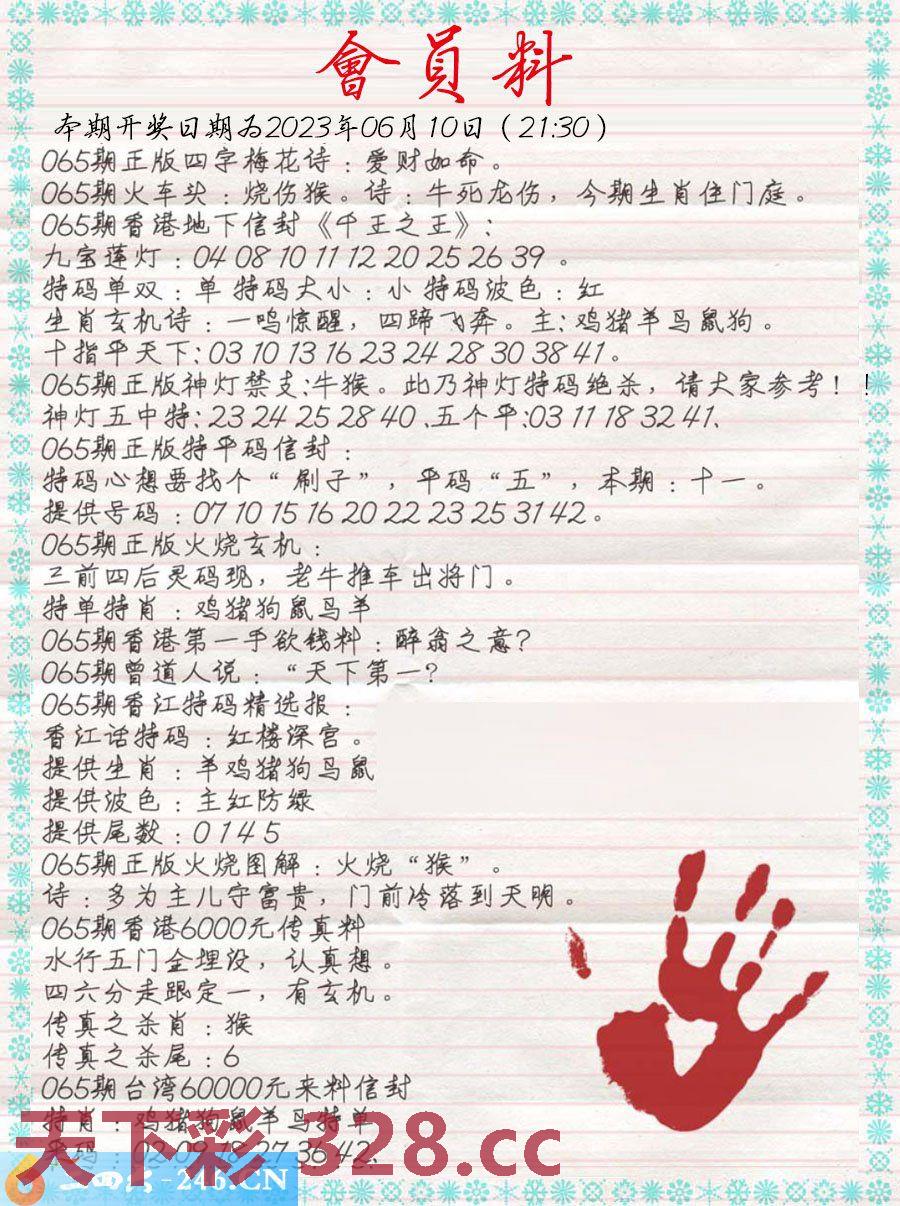 會員料
本期开奖日期为2023年06月10日（21:30）
065期正版四字梅花诗：爱财如命。
065期火车头：烧伤猴。诗：牛死龙伤，今期生肖住门庭。
065期香港地下信封《千王之王》：
九宝莲灯：04 08 10 11 12 20 25 26 39 。
特码单双：单 特码大小：小 特码波色：红
生肖玄机诗：一鸣惊醒，四蹄飞奔。主：鸡猪羊马鼠狗。
十指平天下：03 10 13 16 23 24 28 30 38 41。
065期正版神灯禁支：牛猴。此乃神灯特码绝杀，请大家参考！！
神灯五中特：23 24 25 28 40 、五个平：03 11 18 32 41、
065期正版特平码信封：
特码心想要找个“刷子”，平码“五”，本期：十一。
提供号码：07 10 15 16 20 22 23 25 31 42。
065期正版火烧玄机：
三前四后灵码现，老牛推车出将门。
特单特肖：鸡猪狗鼠马羊
065期香港第一手欲钱料：醉翁之意？
065期曾道人说：“天下第一？
065期香江特码精选报：
香江话特码：红楼深宫。
提供生肖：羊鸡猪狗马鼠
提供波色：主红防绿
提供尾数：0 1 4 5
065期正版火烧图解：火烧“猴”。
诗：多为主儿守富贵，门前冷落到天明。
065期香港6000元传真料
水行五门金埋没，认真想。
四六分走跟定一，有玄机。
传真之杀肖：猴
传真之杀尾：6
065期台湾60000元来料信封
特肖：鸡猪狗鼠羊马特单
来码：02 09 18 27 36 42、
天下彩 328.cc
二四六-246.CN